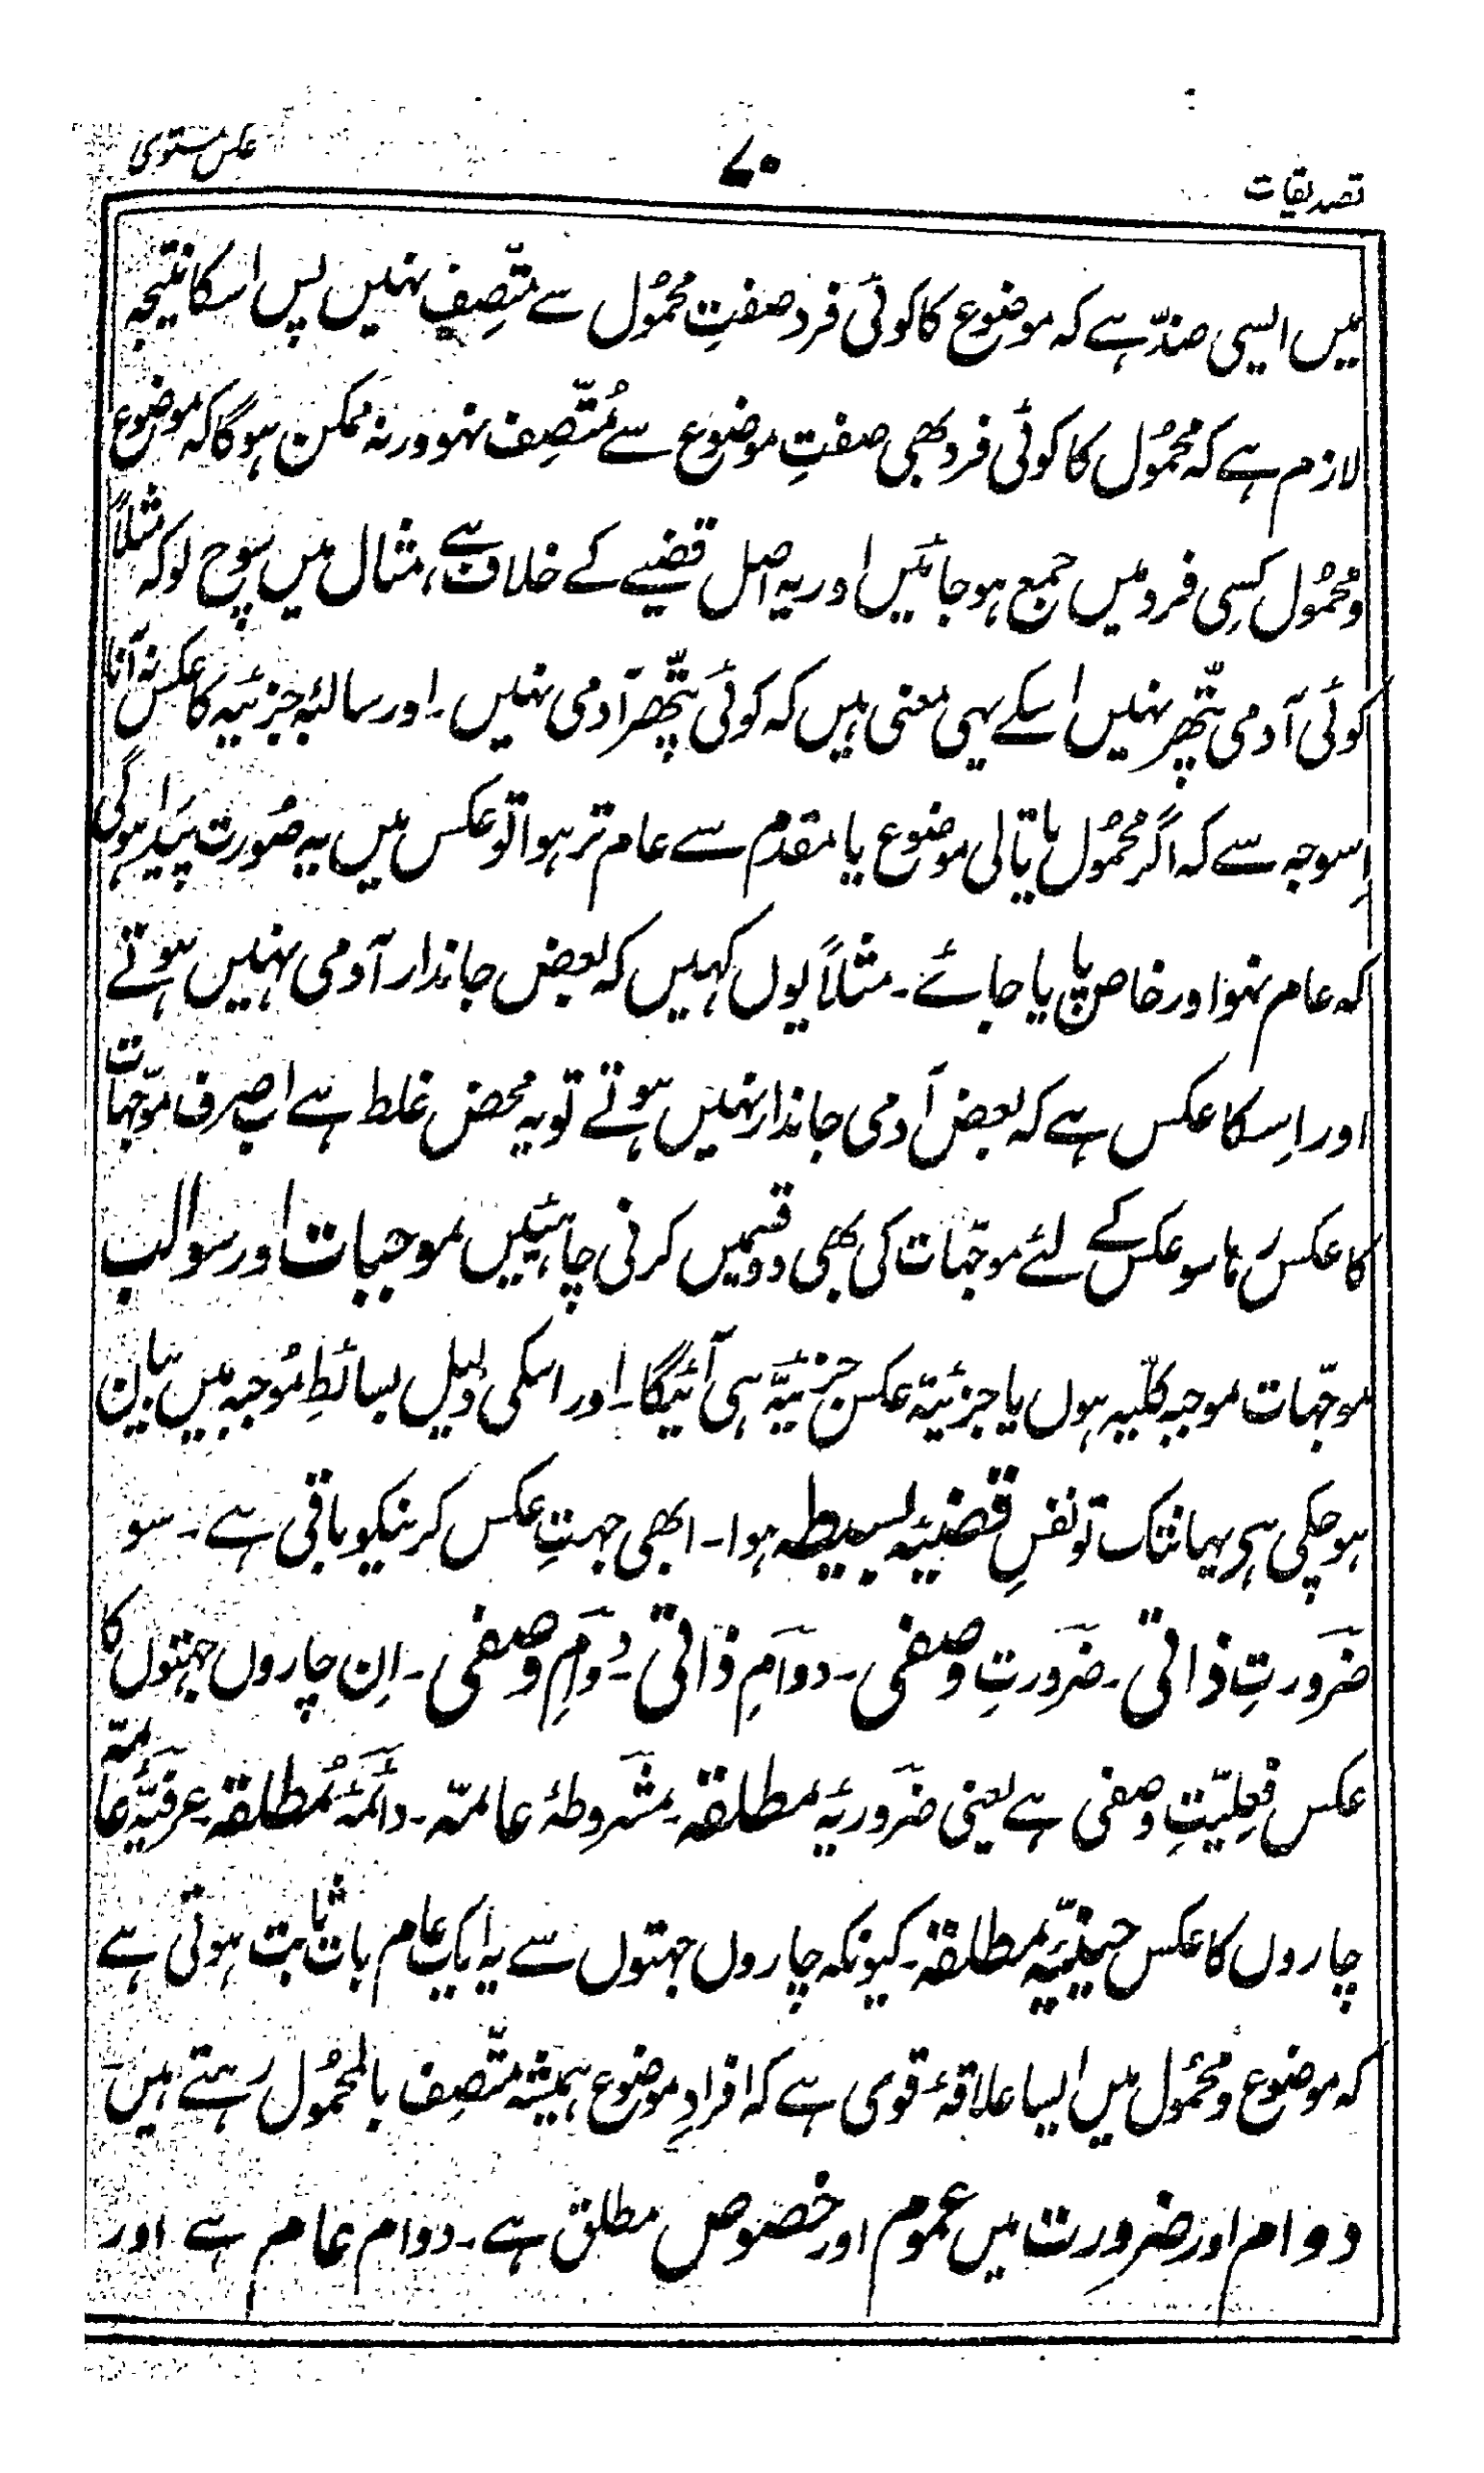 تصدیقات
۷۰
عکس مستوی
میں ایسی ضدّ ہے کہ موضوع کا کوئی فرد صفتِ محمُول سے متّصِف نہیں پس اسکا نتیجہ
لازم ہے کہ محمُول کا کوئی فرد بھی صفتِ موضوع سے مُتّصِف نہو ورنہ ممکن ہوگا کہ موضوع
و محمُول کسِی فرد میں جمع ہو جائیں اور یہ اصل قضیے کے خلاف ہے، مثال میں سوچ لو کہ مثلاً
کوئی آدمی پتّھر نہیں اسکے یہی معنی ہیں کہ کوئی پتّھر آدمی نہیں۔ اور سالبۂ جزئیہ کا عکس نہ آنا
اِسوجہ سے کہ اگر محمُول یا تالی موضوع یا مقدم سے عام تر ہوا تو عکس میں یہ صُورت پیدا ہوگی
کہ عام نہو اور خاص پایا جائے۔ مثلاً یوں کہیں کہ بعض جاندار آدمی نہیں ہوتے
اور اِسکا عکس ہے کہ بعض آدمی جاندار نہیں ہوتے تو یہ محض غلط ہے اب صِرف موّجہات
کا عکس رہا سو عکس کے لئے موجّہات کی بھی دو قسمیں کرنی چاہئیں موجبات اور سوالب
موجّہات موجبہ کلّیہ ہوں یا جزئیۃ عکس جزئیَّہ ہی آئیگا۔ اور اسکی دلیل بسائطِ مُوجبہ میں بیان
ہو چکی ہی یہانتک تو نفسِ قضیۂ بسیطہ ہوا۔ ابھی جہتِ عکس کرنیکو باقی ہے۔ سو
ضَرورتِ ذاتی۔ ضَرورتِ وصفی۔ دوامِ ذاتی۔ دَوامِ وصفی۔ اِن چاروں جہتوں کا
عکس فِعلِیّتِ وصفی ہے یعنی ضَروریۂ مطلقۃ۔ مشَروطۂ عامّۃ۔ دائمَۂ مُطلقۃ۔ عرفیّۂ عامّۃ
چاروں کا عکس حینیّۂ مطلقۃ۔ کیونکہ چاروں جہتوں سے یہ ایک عام بات ثابت ہوتی ہے
کہ موضوع و محمُول میں ایسا علاقۂ قوی ہے کہ افرادِ موضوع ہمیشہ متّصِف بالمحمُول رہتے ہیں
دوام اور ضرورت میں عموم اور خصوص مطلق ہے۔ دوام عام ہے اور